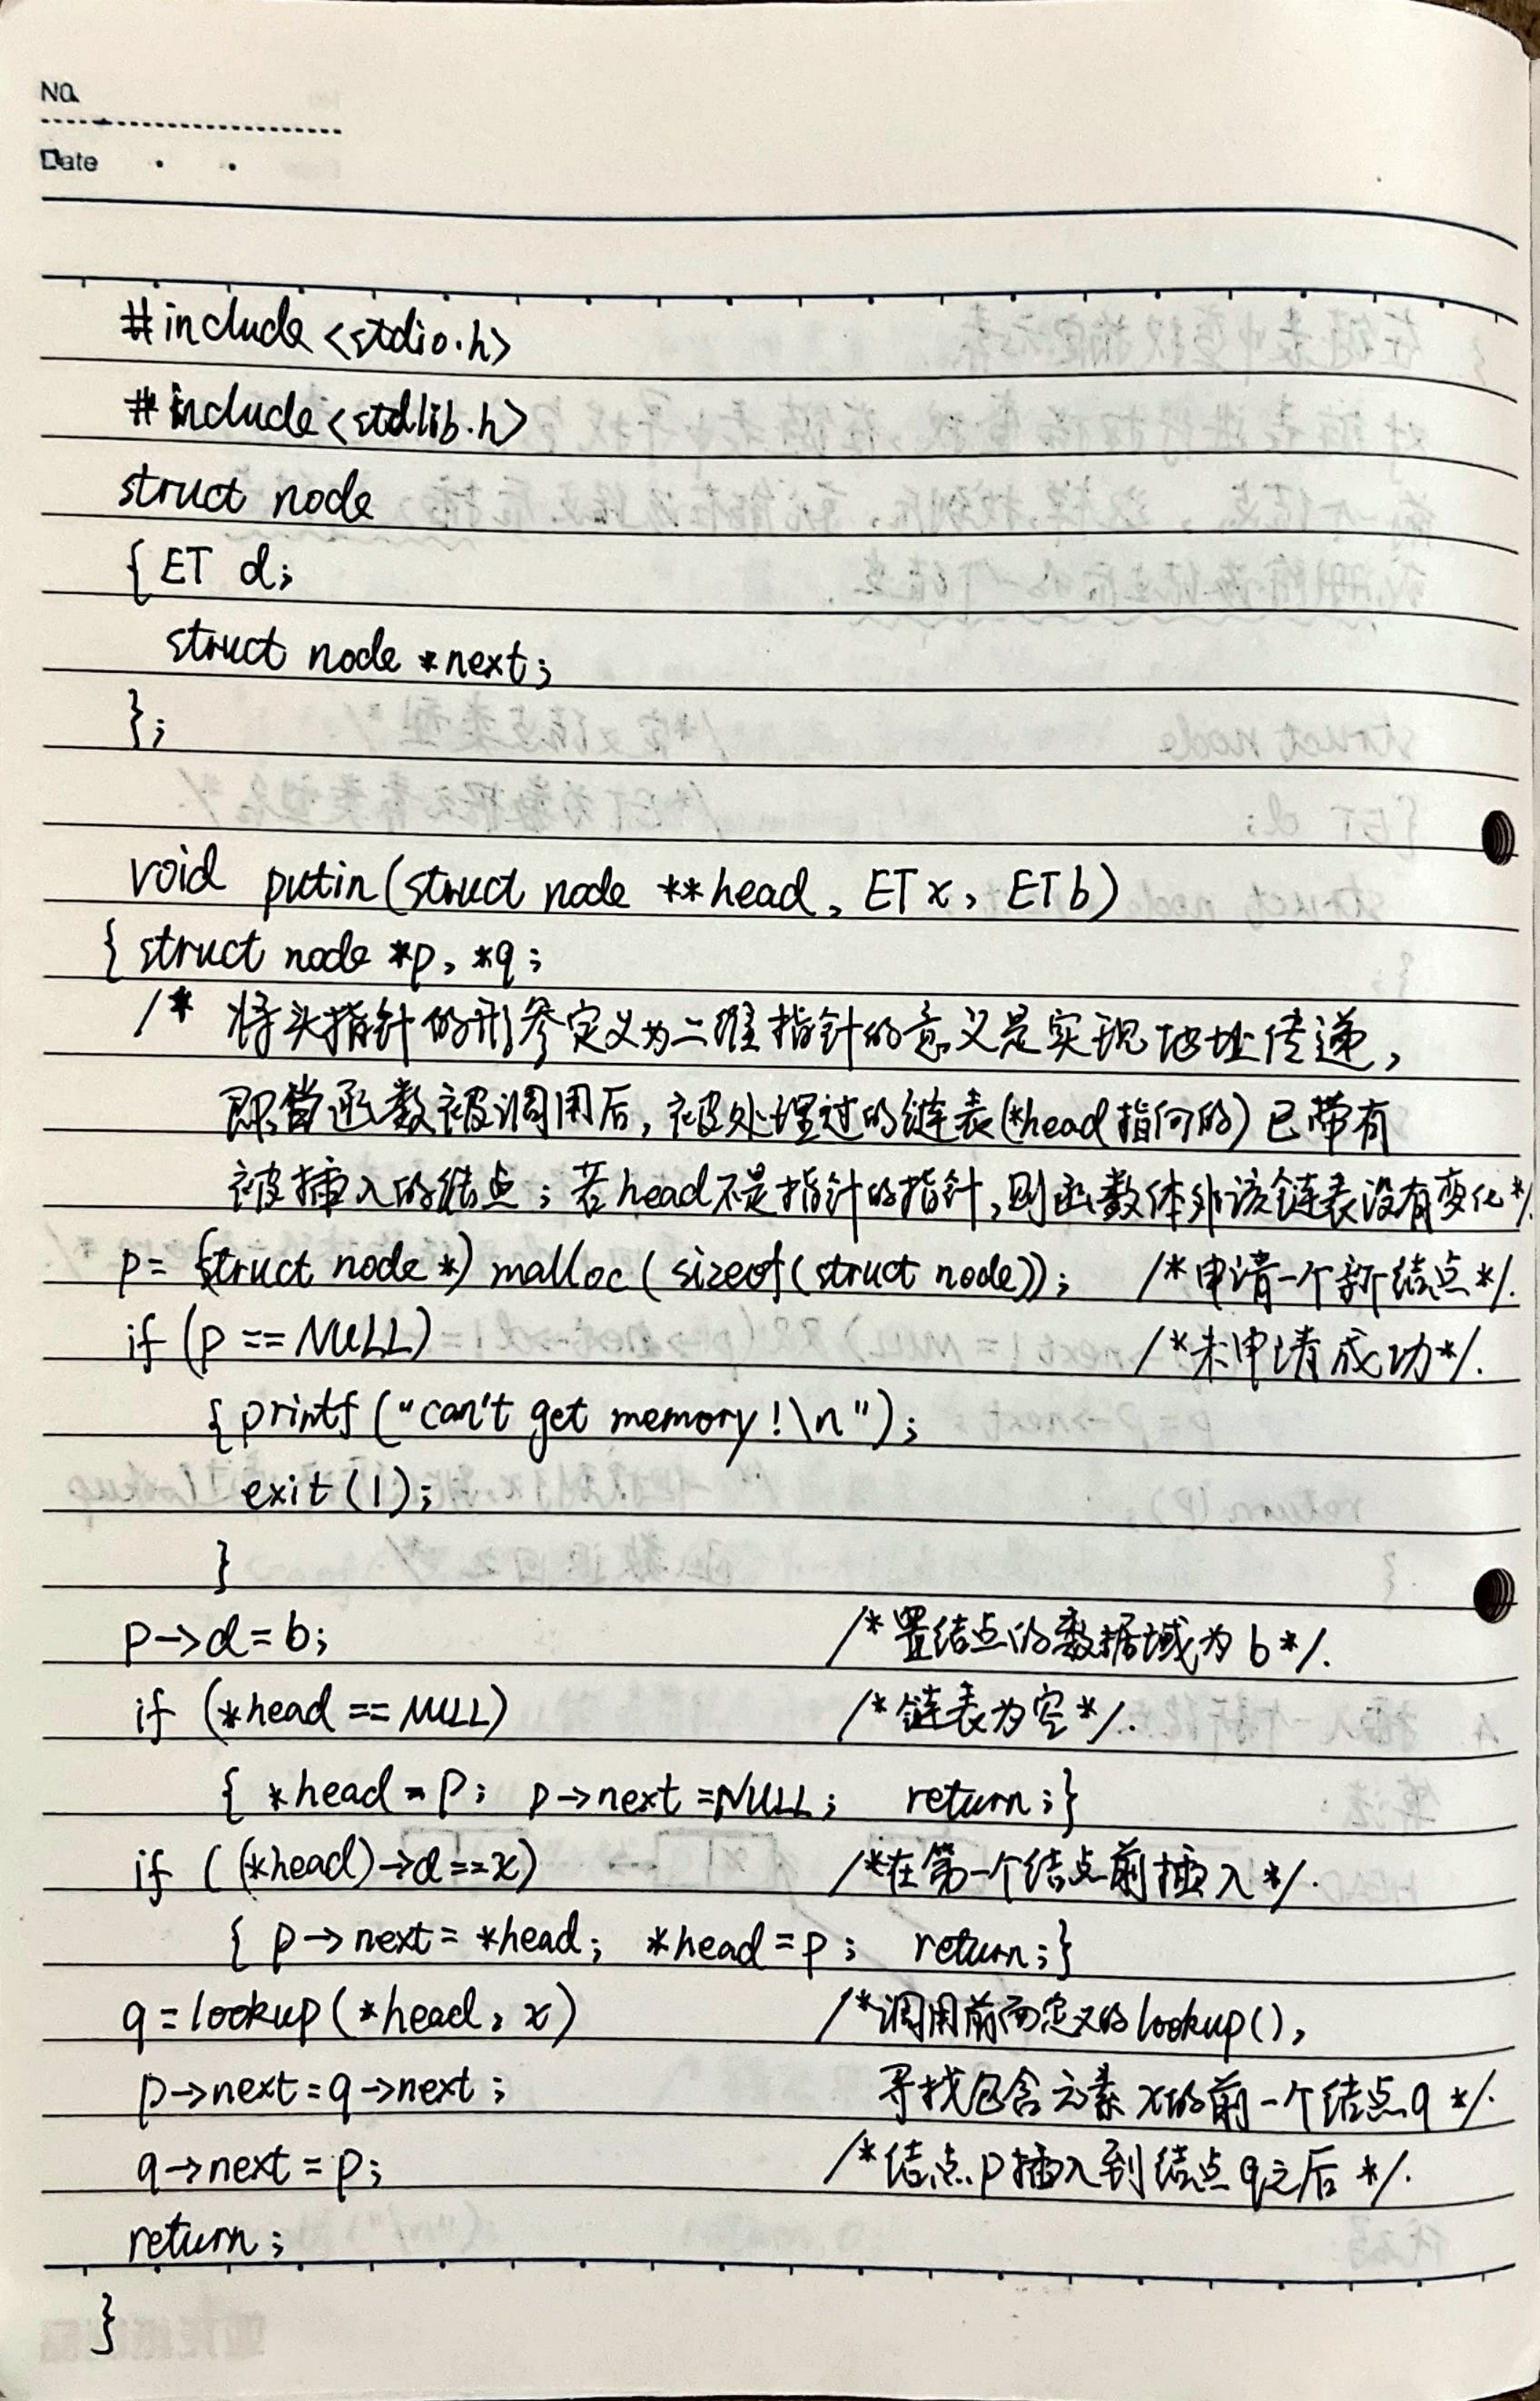 NO.
Date
#include <stdio.h>
#include <stdlib.h>
struct node
{ ET d;
struct node *next;
};
void putin(struct node **head, ET x, ET b)
{ struct node *p, *q;
/* 将头指针的形参定义为二维指针的意义是实现地址传递,
即当函数被调用后, 被处理过的链表(*head指向的)已带有
被插入的结点; 若head不是指针的指针, 则函数体外该链表没有变化*/.
p = (struct node *) malloc(sizeof(struct node)); /*申请一个新结点*/.
if (p == NULL) /*未申请成功*/.
{ printf("can't get memory!\n");
exit(1);
}
p->d = b; /*置结点的数据域为b*/.
if (*head == NULL) /*链表为空*/.
{ *head = p; p->next = NULL; return;}
if ((*head)->d == x) /*在第一个结点前插入*/.
{ p->next = *head; *head = p; return;}
q = lookup(*head, x) /*调用前面定义的lookup(),
p->next = q->next; 寻找包含元素x的前一个结点q */.
q->next = p; /*结点p插入到结点q之后*/.
return;
}